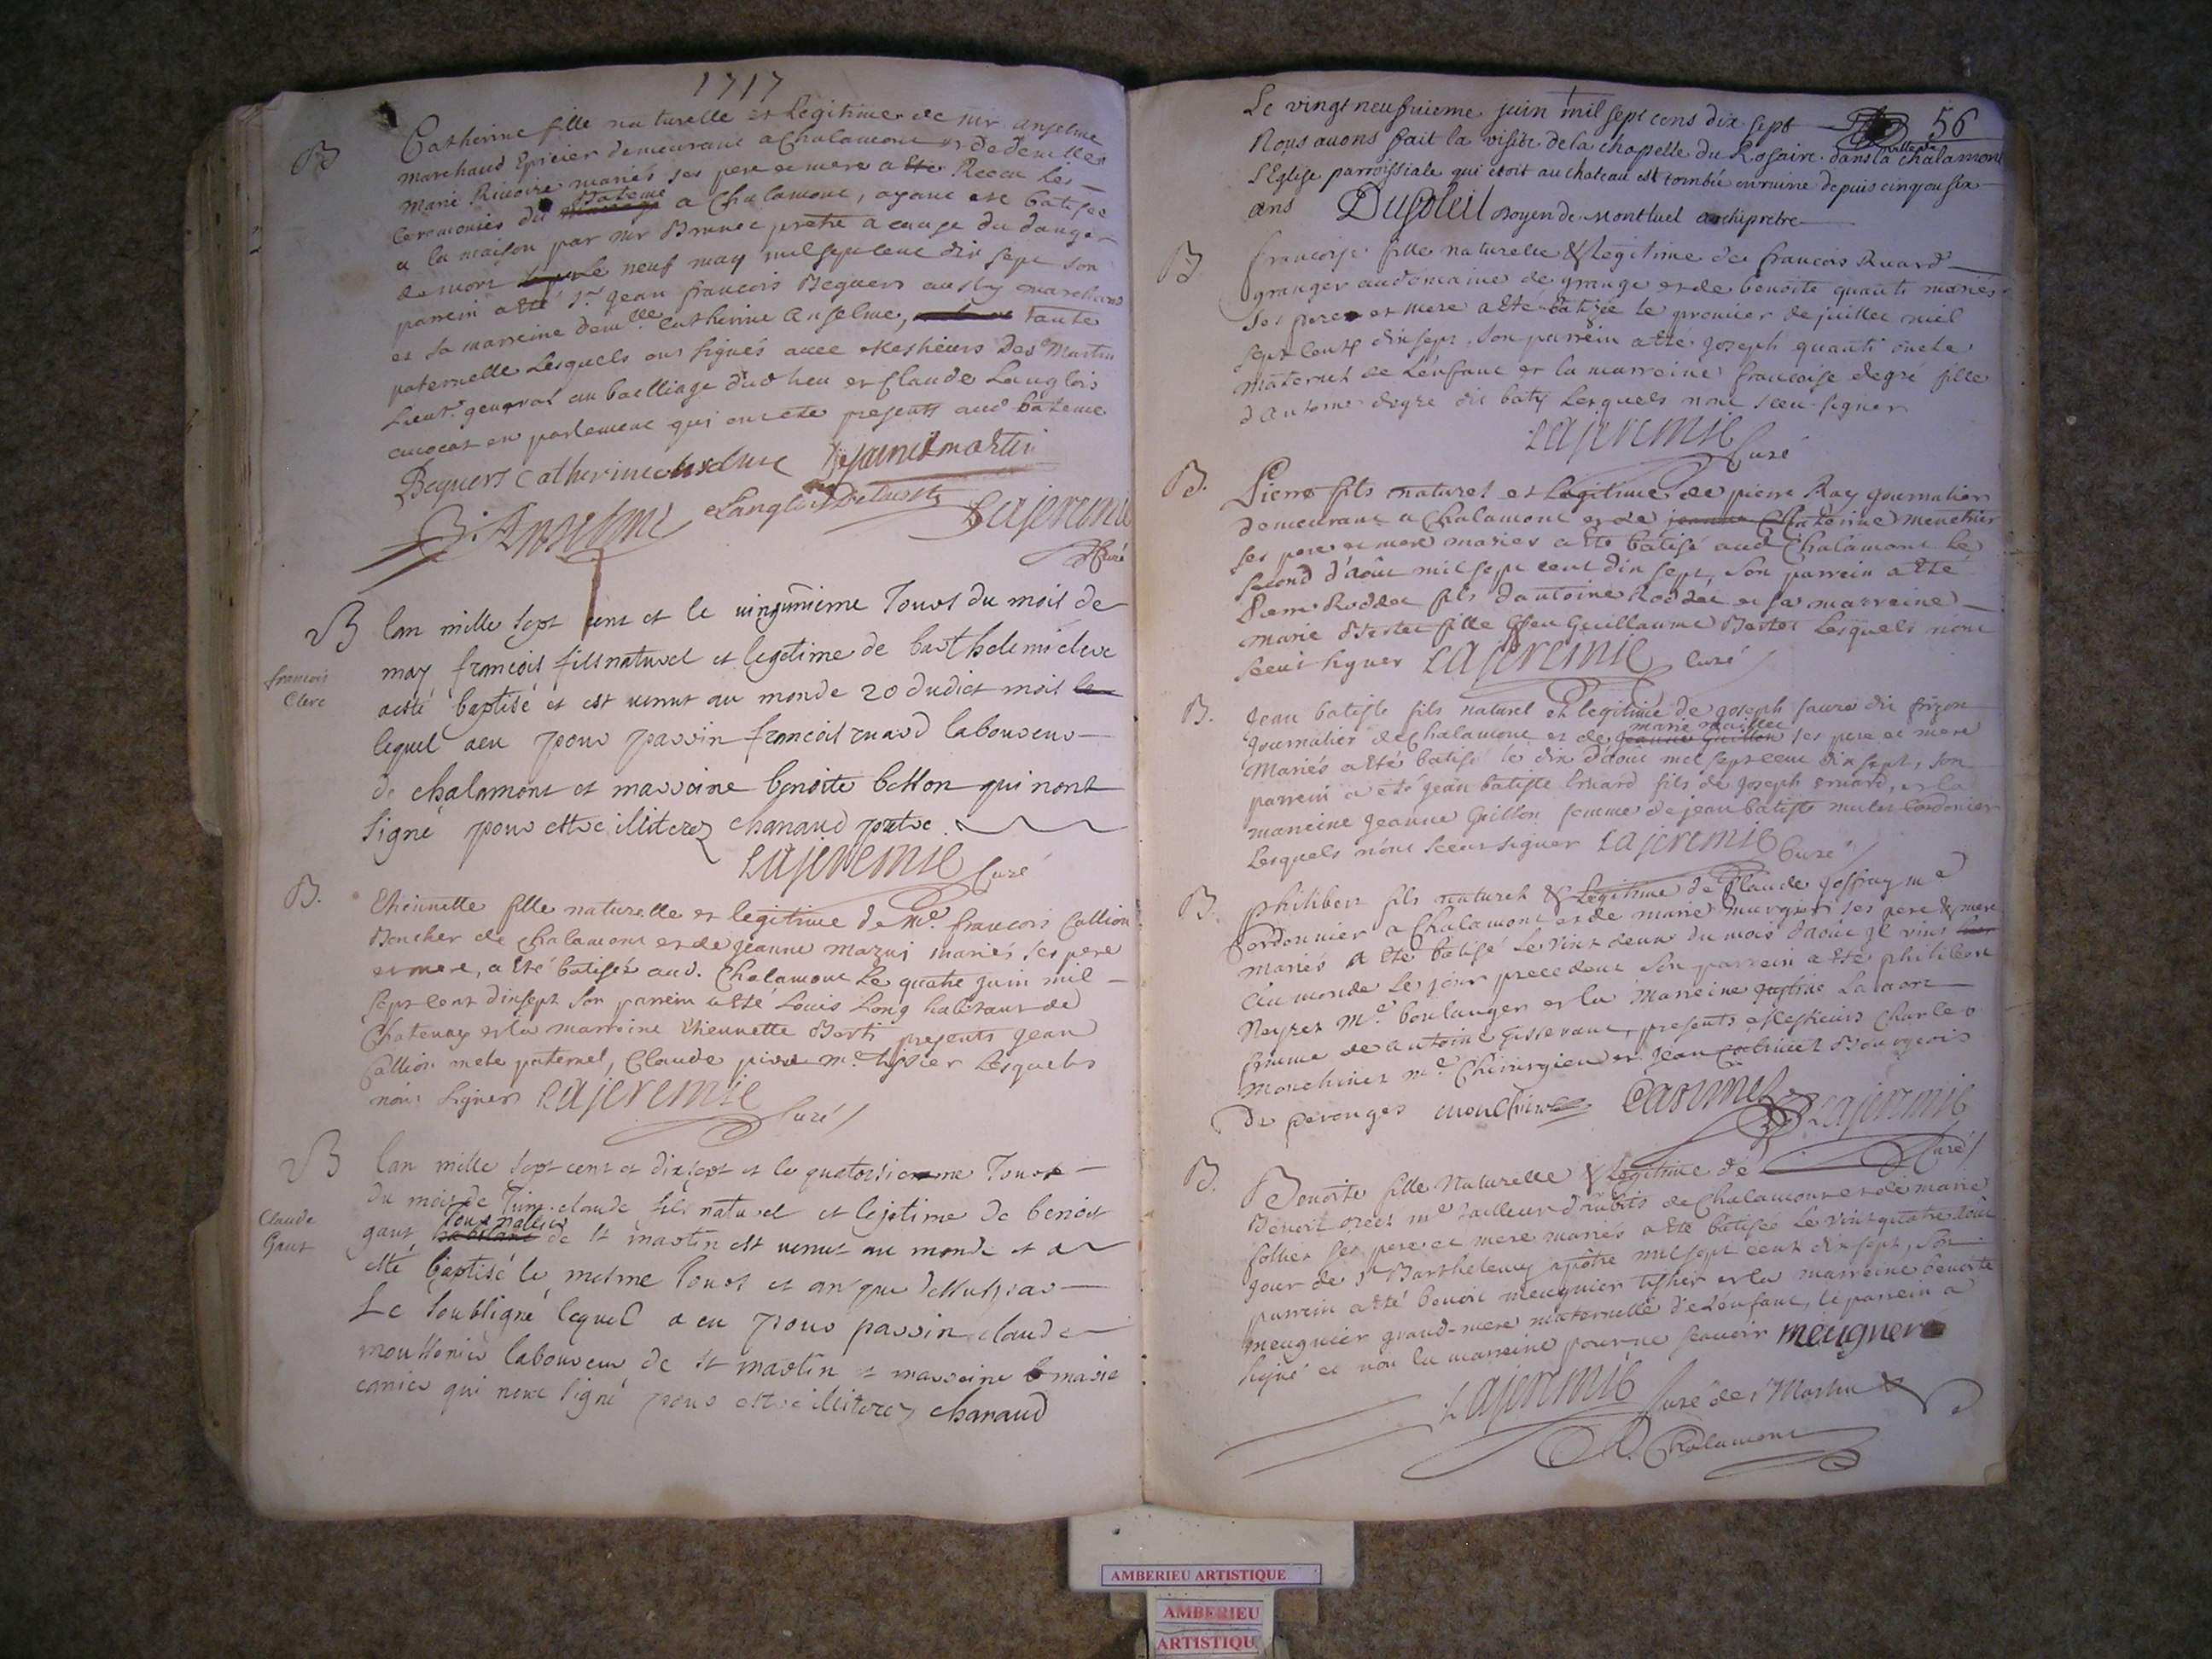 1717
B
Catherine fille naturelle et legitime de mr anselme
marchand Epicier demeurant a Chalamont et de demlle
marie Ricoire mariés ses pere et mere a été Receu les
ceremonies du bateme a Chalamont, ayant esté batisée
a la maison par mr Brunet pretre a cause du danger
de mort le neuf may mil sept cent dix sept son
parrein a été Sr jean francois Beguers marchand
et sa marreine demlle Catherine anselme, tante
paternelle Lesquels ont signés avec Messieurs Des Martin
Lieut. general au bailliage dud lieu et Claude Langlois
avocat en parlement qui ont été presents aud bateme
Beguers Catherine anselme De saint martin
Anselme Langlois Lajeremie
Curé
B
francois
Clerc
lan mille sept cent et le vingunieme Jours du mois de
may francois fils naturel et legetime de barthelemi clerc
a esté baptisé et est venut au monde 20 dudict mois
lequel a eu pour parrin francois ruard laboureur
de chalamont et marreine benoite betton qui nont
signé pour estre illiterez chanaud pretre
Lajeremie Curé
B.
Etiennette fille naturelle et legitime de Me. francois Callion
Boucher de Chalamont et de jeanne mazui mariés ses pere
et mere, a été batisée aud. Chalamont le quatre juin mil
sept cent dix sept son parrein a été Louis Long habitant de
Chatenay et la marreine Etiennette Berti presents jean
Callion paternel, Claude me. tissier Lesquels
nont signer Lajeremie
Curé
B
Claude
Gaut
lan mille sept cent et dixsept et le quatorsieme Jours
du mois de Juin claude fils naturel et lejetime de benoit
gaut journalier de st martin est venut au monde et a
esté baptisé le mesme Jours et an que dessus par
Le soubsigné lequel a eu pour parrin claude
mouttonier laboureur de st martin et marreine marie
canier qui nont signé pour estre illiterez chanaud
Le vingt neufuieme juin mil sept cens dix sept 56
Nous auons fait la visite de la chapelle du Rosaire dans la ville de chalamont
L'Eglise parroissiale qui etoit au chateau est tombée en ruine depuis cinq ou six
ans Dusoleil Doyen de Montluel archipretre
B
francoise fille naturelle & legitime de francois Ruard
granger au domaine de grange et de benoite quanti mariés
ses pere et mere a été batisée le premier de juillet mil
sept cent dix sept, son parrein a été joseph quanti oncle
maternel de L'enfant et la marreine francoise degré fille
d'antoine degré du baty Lesquels nont sceu signer
Lajeremie Curé
B.
Pierre fils naturel et legitime de pierre Ray journalier
demeurant a Chalamont et de Catherine menetrier
ses pere et mere mariés a été batisé aud Chalamont le
second d'août mil sept cent dix sept, son parrein a été
Pierre Roddet fils d'antoine Roddet et sa marreine
marie Bertet fille de feu Guillaume Bertet Lesquels nont
sceut signer Lajeremie Curé
B.
Jean batiste fils naturel et legitime de joseph faure dit frizon
journalier de Chalamont et de marie maillet ses pere et mere
Mariés a été batisé le dix d'aout mil sept cent dix sept, son
parrein a été jean batiste Ernard fils de joseph ernard, et la
marreine jeanne Guillon femme de jean batiste mulet Cordonier
Lesquels n'ont sceut signer Lajeremie Curé
B.
philibert fils naturel & Legitime de Claude joffray me
Cordonnier a Chalamont et de marie murgier ses pere & mere
mariés a été batisé le vint deux du mois d'aout jl vint
au monde Le jour precedent son parrein a été philibert
Neyret me. boulanger et la marreine justine Lamort
femme de antoine Gissevant, presents Messieurs Charle
Monchinet me. Chirurgien et jean Bourgeois
De perouges Monchinet Lajeremie
Curé
B.
Benoite fille Naturelle & Legitime de
Benoit me tailleur d'habits de Chalamont et de marie
follier ses pere et mere mariés a été batisée le vint quatre aout
jour de St Barthelemy apôtre mil sept cent dix sept, son
parrein a été benoit meugnier tissier et la marreine benoite
meugnier grand-mere maternelle de L'enfant, le parrein a
signé et non la marreine pour ne scavoir meugner
Lajeremie Curé de St Martin
de Chalamont
AMBERIEU ARTISTIQUE
AMBERIEU
ARTISTIQU